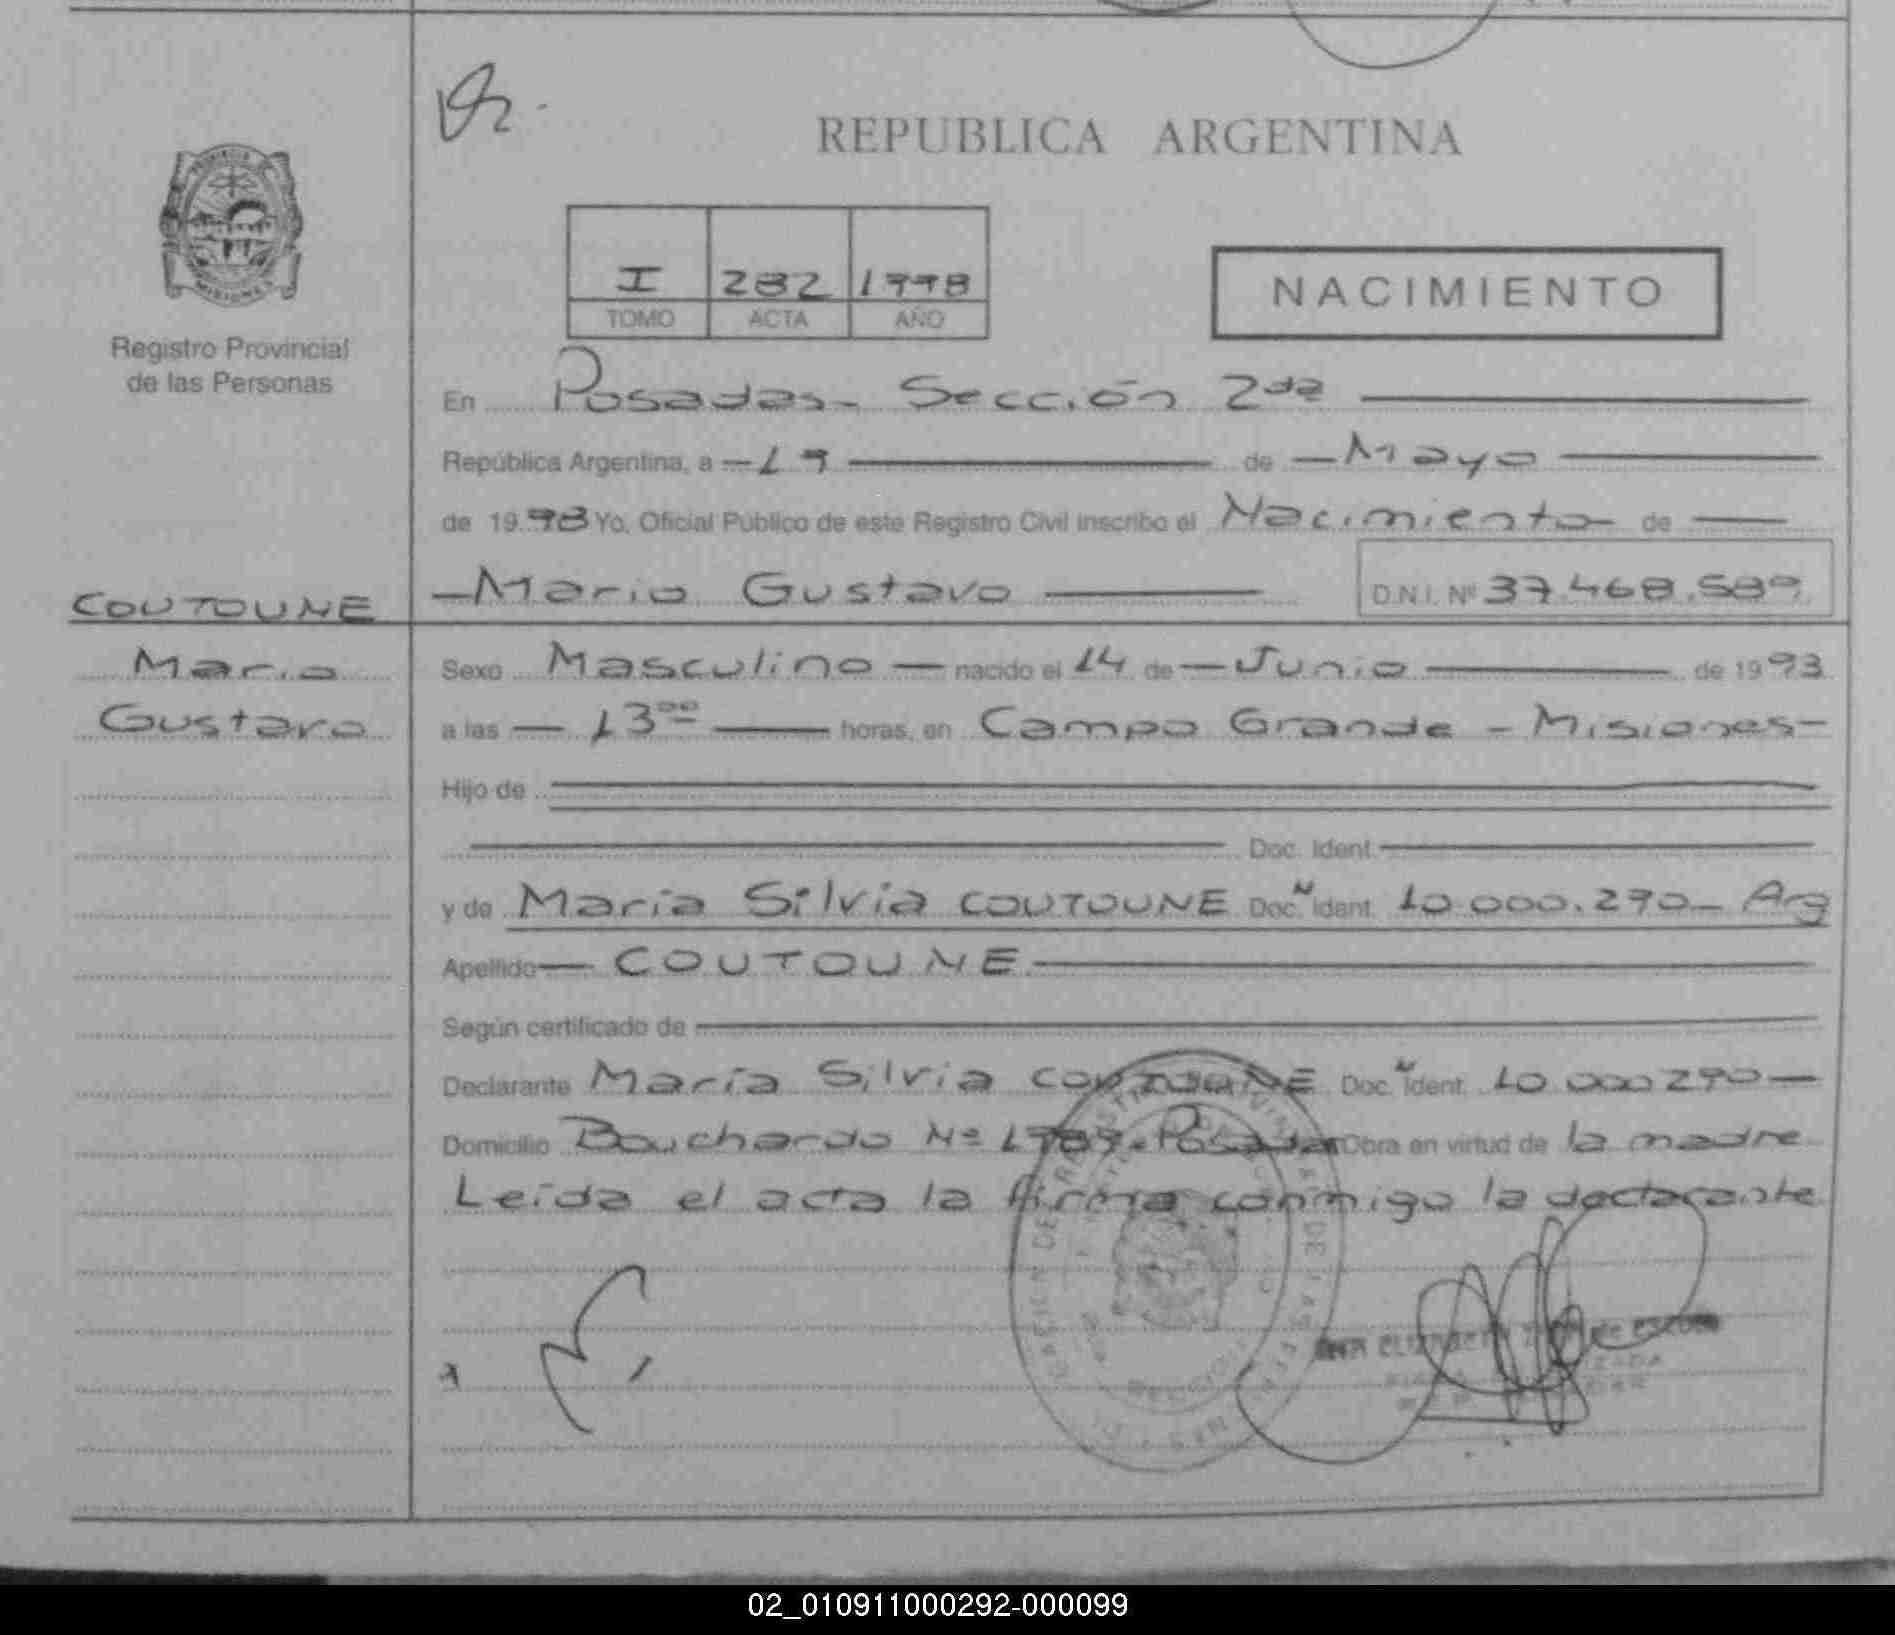 REPUBLICA ARGENTINA
PROVINCIA DE
MISIONES
Registro Provincial
de las Personas
I 282 1998
TOMO ACTA AÑO
NACIMIENTO
En Posadas - Sección 2da
República Argentina, a - 19 de - Mayo
de 1998 Yo, Oficial Público de este Registro Civil inscribo el Nacimiento de
- Mario Gustavo D.N.I. Nº 37.468.589
COUTOUNE
Mario
Gustavo
Sexo Masculino - nacido el 14 de - Junio de 1993
a las - 13 00 horas, en Campo Grande - Misiones -
Hijo de
Doc. Ident.
y de María Silvia COUTOUNE Doc. N Ident. 10.000.290 - Arg
Apellido - COUTOUNE
Según certificado de
Declarante María Silvia COUTOUNE Doc. N Ident. 10.000 290 -
Domicilio Bouchardo Nº 1989 - Posadas Obra en virtud de la madre
Leída el acta la firma conmigo la declarante
02_010911000292-000099